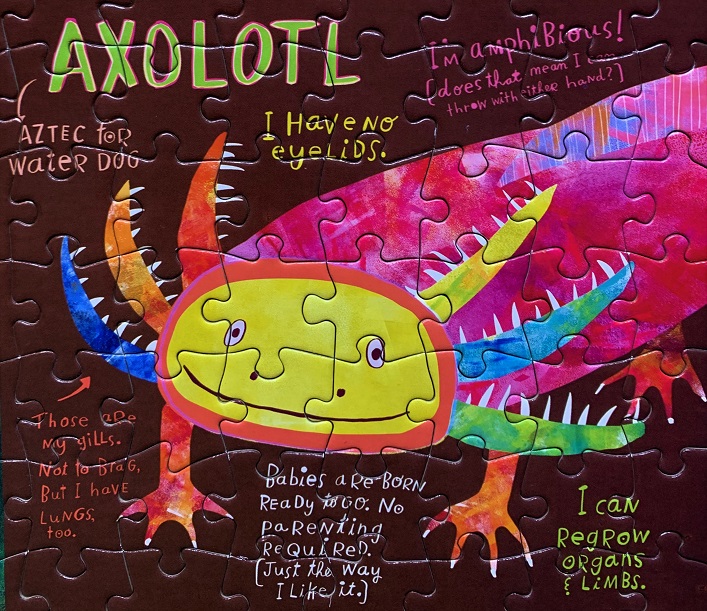 AXOLOTL
AZTEC FOR
WATER DOG
I Have NO
eyeLIDS.
I'm amphibious!
[does that mean I can
throw with either hand?]
Those are
my gills.
Not to Brag,
But I have
LUNGS,
too.
Babies aRe BORN
ReaDy to GO. No
paRenting
ReQuiRed.
[Just the way
I Like it.]
I can
RegRow
ORgans
& LiMBs.